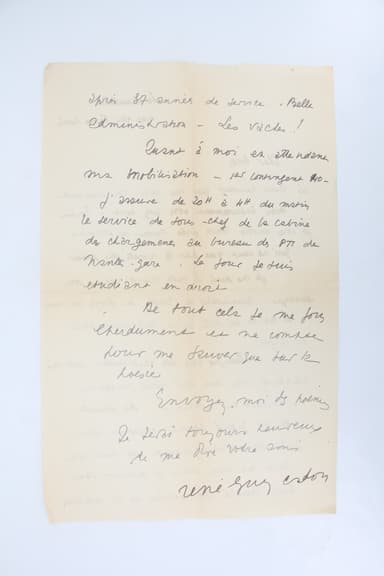 après 37 années de service. Belle
administration – Les vaches !
Quant à moi en attendant
ma mobilisation – 1er contingent
j'assure de 20H à 4H du matin
le service de sous-chef de la cabine
des chargements au bureau des PTT de
Nantes-gare. Le jour je suis
étudiant en droit
De tout cela je me fous
éperdument et ne compte
pour me sauver que sur la
poésie
Envoyez-moi des poèmes
Je serai toujours heureux
de me dire votre ami
René Guy Cadou